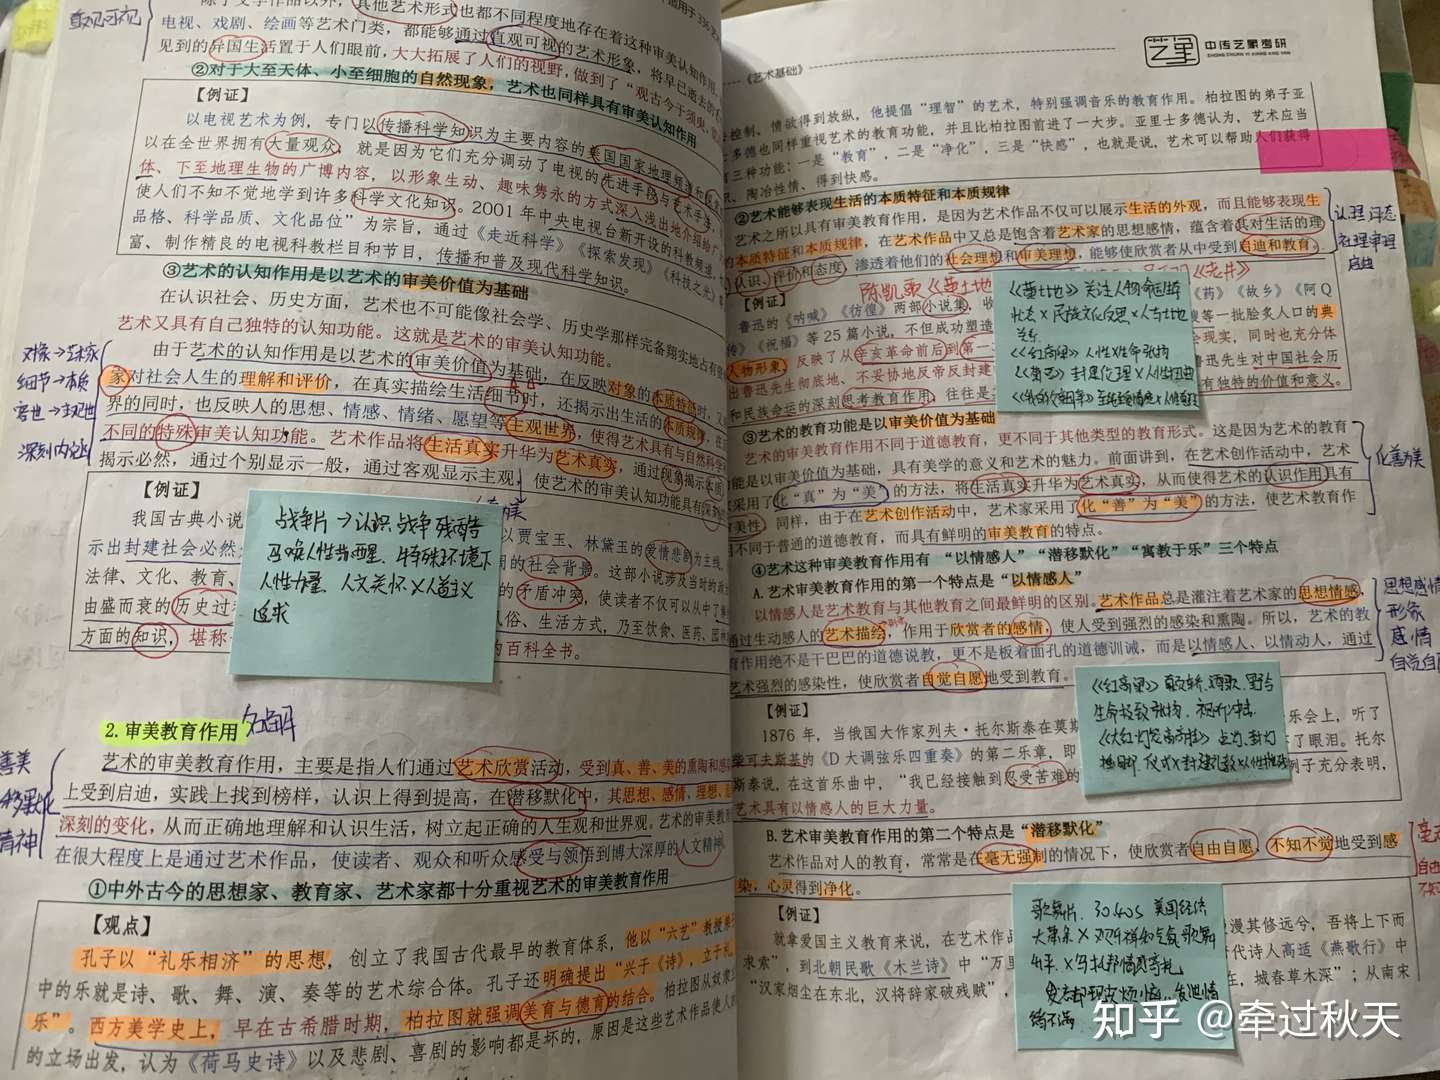 除了文学作品以外，其他艺术形式也都不同程度地存在着这种审美认知作用，
电视、戏剧、绘画等艺术门类，都能够通过直观可视的艺术形象，将早已逝去的
见到的异国生活置于人们眼前，大大拓展了人们的视野，做到了“观古今于须臾，
②对于大至天体、小至细胞的自然现象，艺术也同样具有审美认知作用
【例证】
以电视艺术为例，专门以传播科学知识为主要内容的美国国家地理频道和
以在全世界拥有大量观众，就是因为它们充分调动了电视的先进手段与艺术手法，
体、下至地理生物的广博内容，以形象生动、趣味隽永的方式深入浅出地介绍给
使人们不知不觉地学到许多科学文化知识。2001 年中央电视台新开设的科教频道，
品格、科学品质、文化品位”为宗旨，通过《走近科学》《探索发现》《科技之光》
富、制作精良的电视科教栏目和节目，传播和普及现代科学知识。
③艺术的认知作用是以艺术的审美价值为基础
在认识社会、历史方面，艺术也不可能像社会学、历史学那样完备翔实地占有
艺术又具有自己独特的认知功能。这就是艺术的审美认知功能。
由于艺术的认知作用是以艺术的审美价值为基础，在反映对象的本质特征时，又
家对社会人生的理解和评价，在真实描绘生活细节时，还揭示出生活的本质规律，在
界的同时，也反映人的思想、情感、情绪、愿望等主观世界，使得艺术具有与自然科学
不同的特殊审美认知功能。艺术作品将生活真实升华为艺术真实，通过现象揭示本质
揭示必然，通过个别显示一般，通过客观显示主观，使艺术的审美认知功能具有深刻
对象→艺术家
细节→本质
客世→主观世
深刻内涵
【例证】
我国古典小说
以贾宝玉、林黛玉的爱情悲剧为主线，
示出封建社会必然
的社会背景。这部小说涉及当时的政
法律、文化、教育、
的矛盾冲突，使读者不仅可以从中了解
由盛而衰的历史过
俗、生活方式，乃至饮食、医药、园林
方面的知识，堪称
的百科全书。
战争片→认识战争残酷
唤人性苏醒、特殊环境下
人性力量、人文关怀×人道主义
追求
2.审美教育作用
名词解
艺术的审美教育作用，主要是指人们通过艺术欣赏活动，受到真、善、美的熏陶和感
上受到启迪，实践上找到榜样，认识上得到提高，在潜移默化中，其思想、感情、理想、
深刻的变化，从而正确地理解和认识生活，树立起正确的人生观和世界观。艺术的审美教育
在很大程度上是通过艺术作品，使读者、观众和听众感受与领悟到博大深厚的人文精神。
善美
移默化
精神
①中外古今的思想家、教育家、艺术家都十分重视艺术的审美教育作用
【观点】
孔子以“礼乐相济”的思想，创立了我国古代最早的教育体系，他以“六艺”教授弟子
中的乐就是诗、歌、舞、演、奏等的艺术综合体。孔子还明确提出“兴于《诗》，立于礼，
乐”。西方美学史上，早在古希腊时期，柏拉图就强调美育与德育的结合。柏拉图从奴隶
的立场出发，认为《荷马史诗》以及悲剧、喜剧的影响都是坏的，原因是这些艺术作品使人的
艺犀 中传艺犀考研
《艺术基础》
控制、情欲得到放纵，他提倡“理智”的艺术，特别强调音乐的教育作用。柏拉图的弟子亚
士多德也同样重视艺术的教育功能，并且比柏拉图前进了一大步。亚里士多德认为，艺术应当
有三种功能：一是“教育”，二是“净化”，三是“快感”，也就是说，艺术可以帮助人们获得
、陶冶性情、得到快感。
②艺术能够表现生活的本质特征和本质规律
艺术之所以具有审美教育作用，是因为艺术作品不仅可以展示生活的外观，而且能够表现生
的本质特征和本质规律，在艺术作品中又总是饱含着艺术家的思想感情，蕴含着其对生活的理
、认识、评价和态度，渗透着他们的社会理想和审美理想，能够使欣赏者从中受到启迪和教育。
认理评态
社理审理
启迪
【例证】
陈凯歌《黄土地
《老井》
鲁迅的《呐喊》《彷徨》两部小说集，收
《药》《故乡》《阿Q
传》《祝福》等 25 篇小说，不但成功塑造
等一批脍炙人口的典
人物形象，反映了从辛亥革命前后到第一
现实，同时也充分体
出鲁迅先生彻底地、不妥协地反帝反封建
鲁迅先生对中国社会历
和民族命运的深刻思考教育作用，往往是
有独特的价值和意义。
《黄土地》关注人物命运
状态×民族文化反思×人与土地
关系
《红高粱》人性×生命张扬
《菊豆》封建伦理×人性扭曲
③艺术的教育功能是以审美价值为基础
艺术的审美教育作用不同于道德教育，更不同于其他类型的教育形式。这是因为艺术的教育
能是以审美价值为基础，具有美学的意义和艺术的魅力。前面讲到，在艺术创作活动中，艺术
采用了化“真”为“美”的方法，将生活真实升华为艺术真实，从而使得艺术的认识作用具有
美性。同样，由于在艺术创作活动中，艺术家采用了化“善”为“美”的方法，使艺术教育作
用不同于普通的道德教育，而具有鲜明的审美教育的特点。
化善为美
④艺术这种审美教育作用有 “以情感人”“潜移默化”“寓教于乐”三个特点
A.艺术审美教育作用的第一个特点是“以情感人”
以情感人是艺术教育与其他教育之间最鲜明的区别。艺术作品总是灌注着艺术家的思想情感，
通过生动感人的艺术描绘，作用于欣赏者的感情，使人受到强烈的感染和熏陶。所以，艺术的教
育作用绝不是干巴巴的道德说教，更不是板着面孔的道德训诫，而是以情感人、以情动人，通过
艺术强烈的感染性，使欣赏者自觉自愿地受到教育。
思想感情
形象
感情
自觉自愿
【例证】
1876 年，当俄国大作家列夫·托尔斯泰在莫斯
乐会上，听了
柴可夫斯基的《D 大调弦乐四重奏》的第二乐章，即
了眼泪。托尔
斯泰说，在这首乐曲中，“我已经接触到忍受苦难的
例子充分表明，
艺术具有以情感人的巨大力量。
《红高粱》颠轿、酒歌、野合
生命极致张扬、祝和冲击
《大红灯笼高高挂》点灯、封灯
捶脚、仪式×封建礼教×人性摧残
B.艺术审美教育作用的第二个特点是“潜移默化”
艺术作品对人的教育，常常是在毫无强制的情况下，使欣赏者自由自愿、不知不觉地受到感
染，心灵得到净化。
【例证】
就拿爱国主义教育来说，在艺术作品
漫漫其修远兮，吾将上下而
求索”，到北朝民歌《木兰诗》中“万里
代诗人高适《燕歌行》中
“汉家烟尘在东北，汉将辞家破残贼”，
在，城春草木深”；从南宋
歌舞片、30 40s 美国经济
大萧条×
知乎 @牵过秋天